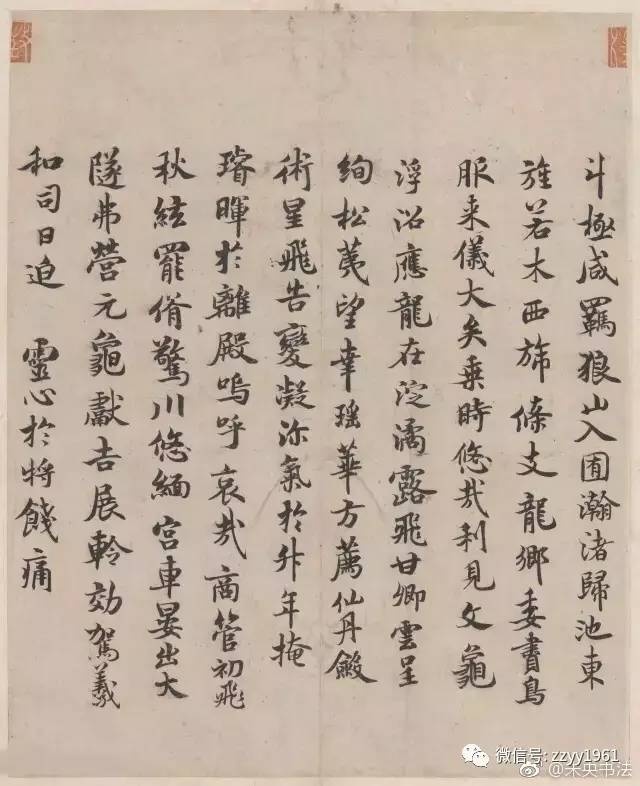 斗極咸羈狼山入囿瀚渚歸池東
旌若木西旆條支龍鄉委書鳥
服来儀大矣乗時悠哉利見文龜
浮沼應龍在淀湛露飛甘卿雲呈
絢松茂望幸瑶華方薦仙丹鍛
術星飛告變凝沴氣於升年掩
璿暉於離殿嗚呼哀哉商管初飛
秋紘罷脩驚川悠緬宮車晏出大
隧弗營元龜獻吉展軨効駕羲
和司日迫 靈心於將餞痛
微信号: zzyy1961
@未央书法